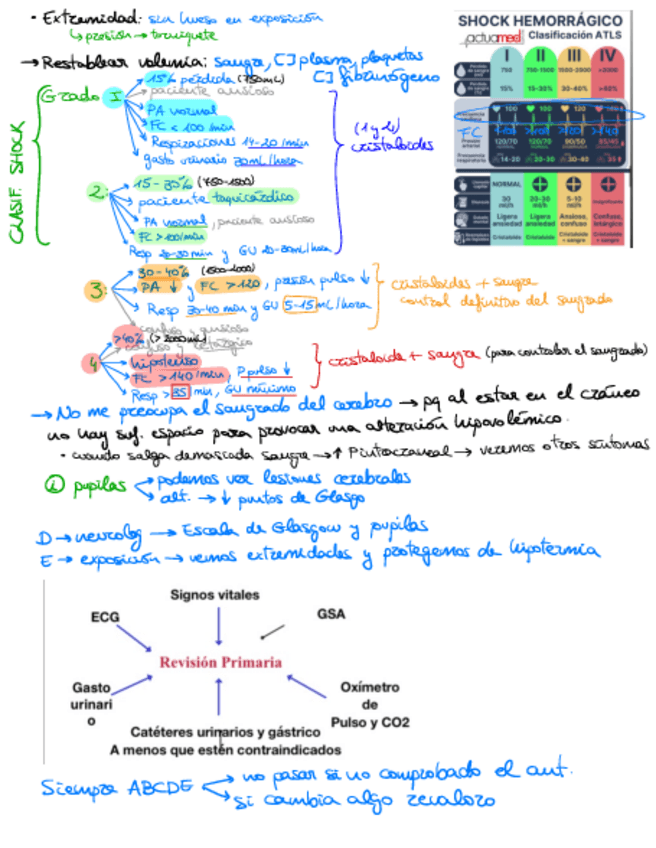 · Extremidad: sin hueso en exposición
↳ presión → torniquete
→ Restablecer volemia: sangre, [ ] plasma, plaquetas
[ ] fibrinógeno
CLASIF. SHOCK
Grado I
15% pérdida (750mL)
paciente ansioso
PA normal
FC < 100/min
Respiraciones 14-20/min
gasto urinario 30mL/hora
2:
15-30% (750-1500)
paciente taquicárdico
PA normal, paciente ansioso
FC > 100/min
Resp 20-30 min y GU 20-30mL/hora
(1 y 2)
cristaloides
3:
30-40% (1500-2000)
PA ↓ y FC > 120, presión pulso ↓
Resp 30-40 min y GU 5-15 mL/hora
confuso y ansioso
cristaloides + sangre
control definitivo del sangrado
4
>40% (>2000mL)
confuso y letárgico
hipotenso
FC > 140/min, P pulso ↓
Resp > 35 min, GU mínimo
cristaloide + sangre (para controlar el sangrado)
SHOCK HEMORRÁGICO
actuamed Clasificación ATLS
I II III IV
750 750-1500 1500-2000 >2000
15% 15-30% 30-40% >40%
100 100 120
FC <100 >100 >120 >140
120/70 120/70 90/50
14-20 20-30 30-40
NORMAL
30 ml/h 20-30 ml/h 5-10 ml/h
Ligera ansiedad Ligera ansiedad Ansioso, confuso Confuso, letárgico
Cristaloide Cristaloide Cristaloide + sangre Cristaloide + sangre
→ No me preocupa el sangrado del cerebro → pq al estar en el cráneo
no hay suf. espacio para provocar una alteración hipovolémica.
· cuando salga demasiada sangre → ↑ Pintracraneal → veremos otros síntomas
pupilas
podemos ver lesiones cerebrales
alt. → ↓ puntos de Glasgo
D → neurolog → Escala de Glasgow y pupilas
E → exposición → vemos extremidades y protegemos de hipotermia
Signos vitales
ECG
GSA
Revisión Primaria
Gasto urinario
Oxímetro de Pulso y CO2
Catéteres urinarios y gástrico
A menos que estén contraindicados
Siempre ABCDE
→ no pasar si no comprobado el ant.
→ si cambia algo revaloro